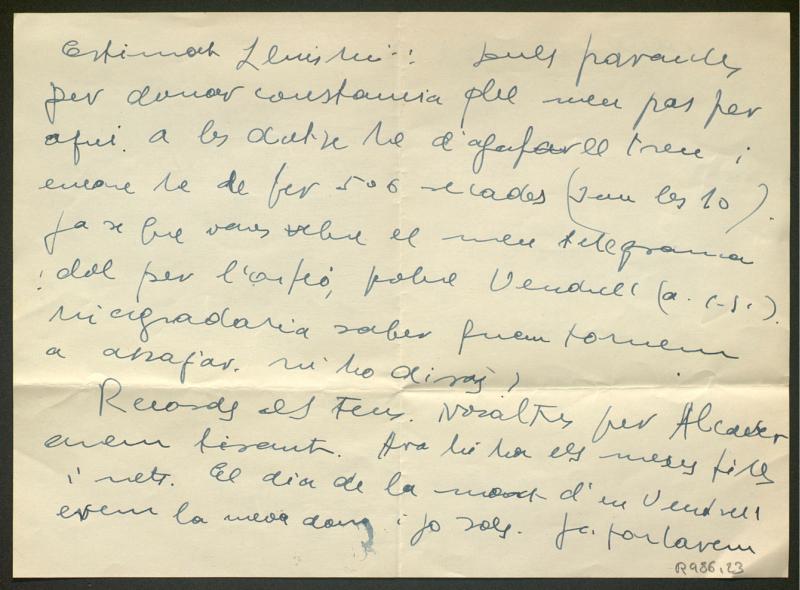 Estimat Lluïset: dues paraules
per donar constancia del meu pas per
aqui. a les dotze he d'agafar el tren i
encare he de fer 5 o 6 recades (son les 10).
Ja se que vares rebre el meu telegrama
i dol per l'orfeó, pobre Vendrell (a. c. s.).
M'agradaria saber quan tornem
a assajar. m'ho diras?
Records als teus. Nosaltres per Alcover
anem tirant. Ara hi ha els meus fills
i nets. El dia de la mort d'en Vendrell
erem la meva dona i jo sols. Ja
R986,23